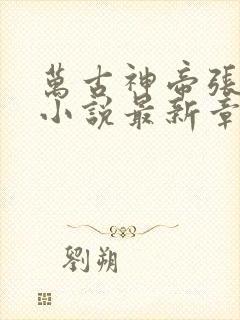 萬古神帝張
小說最新章
劉朔